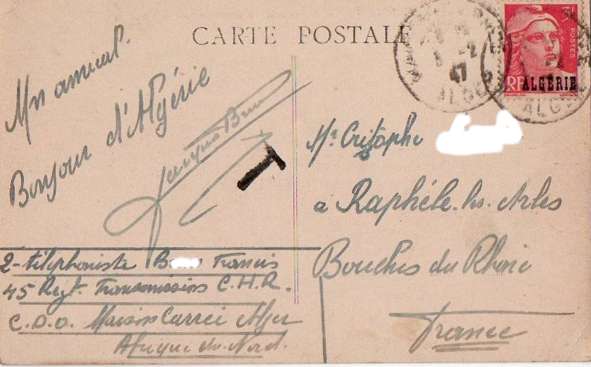 CARTE POSTALE
Un amical
Bonjour d'Algérie
T
2e téléphoniste B Francis
45 Regt. Transmissions C.H.R.
C.O.O. Maison Carrée Alger
Afrique du Nord.
Mr Cristophe
a Raphèle-les-Arles
Bouches du Rhône
France
2
47
ALGER
RF
POSTES
ALGÉRIE